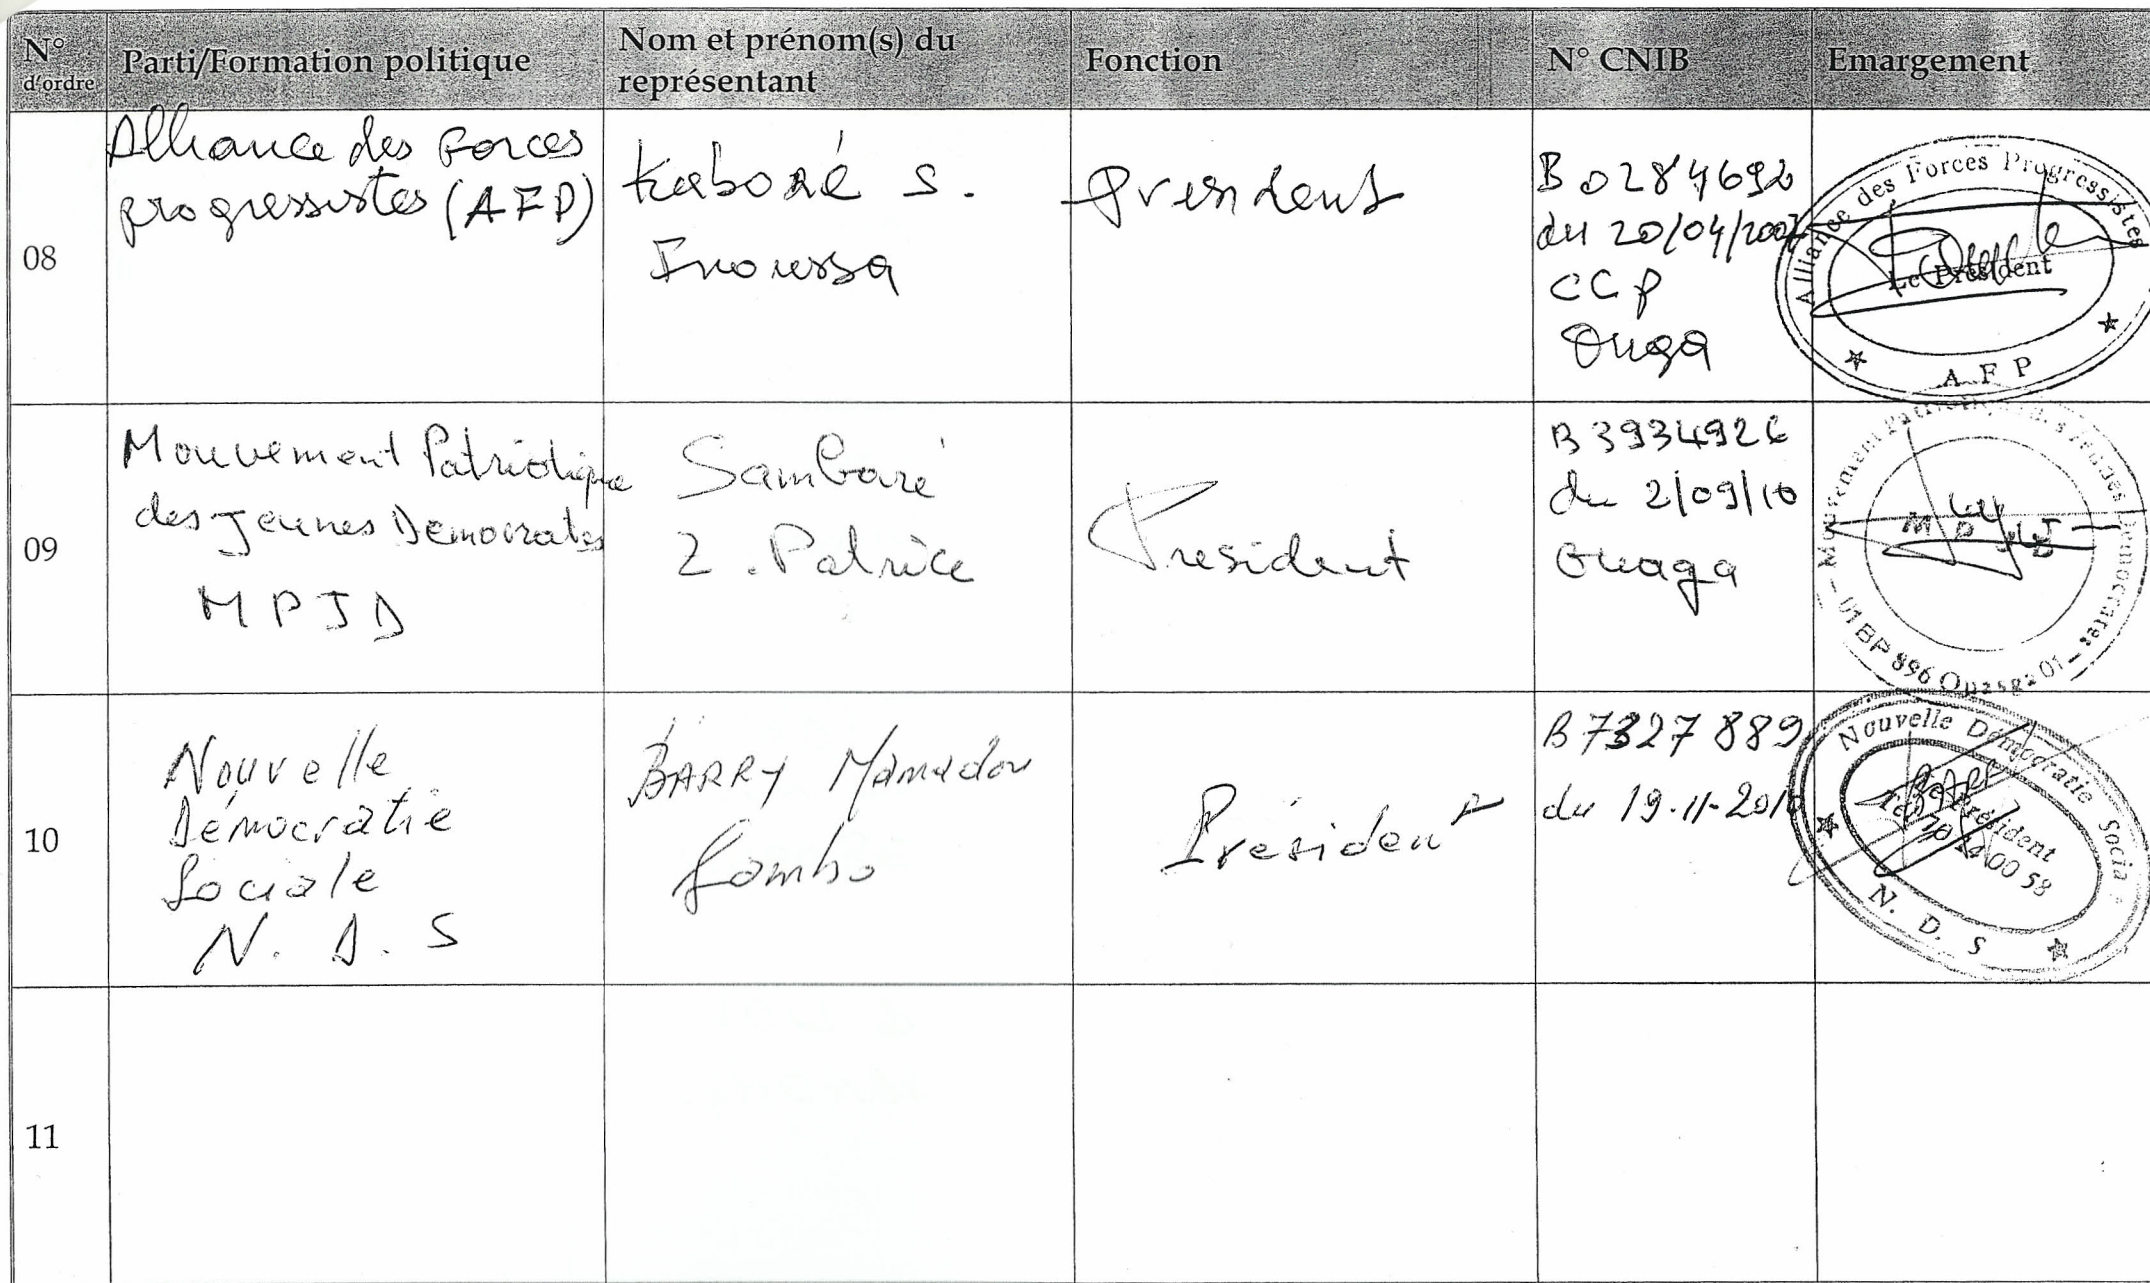 N° d'ordre
Parti/Formation politique
Nom et prénom(s) du
représentant
Fonction
N° CNIB
Emargement
08
Alliance des Forces
progressistes (AFP)
Kaboré S.
Inoussa
President
B 0284692
du 20/04/2007
CCP
Ouga
Alliance des Forces Progressistes
Le Président
A F P
09
Mouvement Patriotique
des Jeunes Democrates
MPJD
Sambaré
Z. Patrice
President
B 3934926
du 2/09/10
Ouaga
Mouvement Patriotique des Jeunes Democrates
01 BP 896 Ouaga 01
10
Nouvelle
Démocratie
Sociale
N. D. S
BARRY Mamadou
Président
B 7327889
du 19.11.2010
Nouvelle Démocratie Socia
Le Président
00 58
N. D. S
11